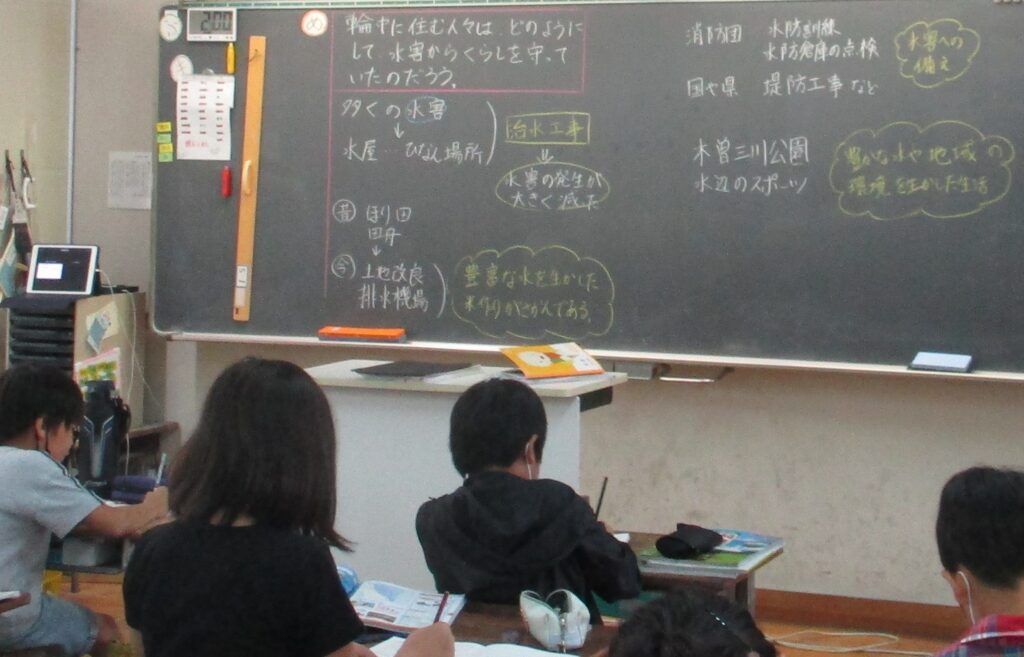 2:00
め
輪中に住む人々は、どのように
して、水害からくらしを守って
いたのだろう。
多くの水害
↓
水屋…ひなん場所
治水工事
⇓
水害の発生が
大きく減った
昔 ほり田
田舟
↓
今 土地改良
排水機場
豊富な水を生かした
米作りがさかんである。
消防団 水防訓練
水防倉庫の点検
国や県 堤防工事など
水害への
備え
木曽三川公園
水辺のスポーツ
豊かな水や地域の
環境を生かした生活